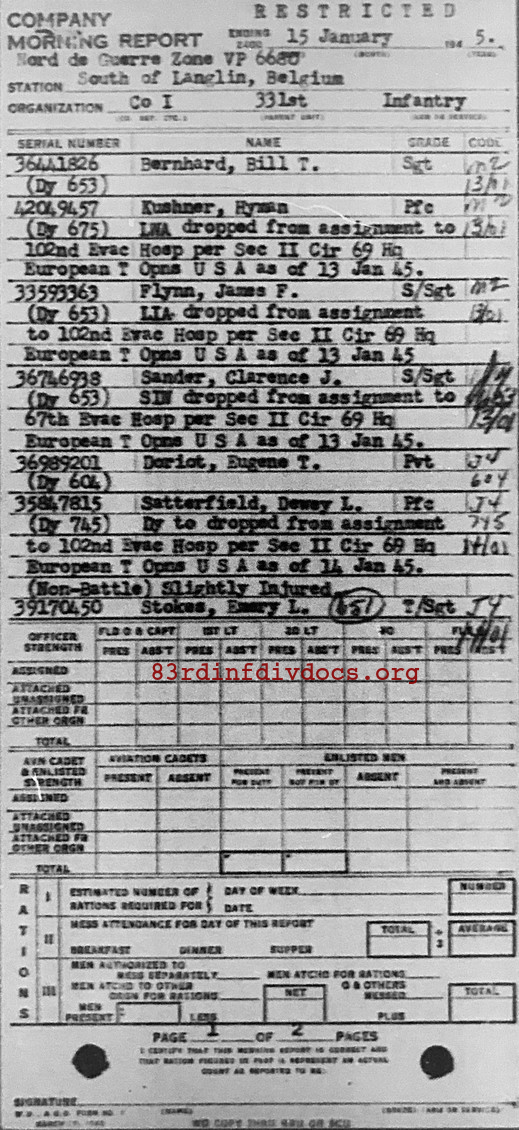 RESTRICTED
COMPANY
MORNING REPORT ENDING 2400 15 January 194 5.
Nord de Guerre Zone VP 6680
STATION South of Langlin, Belgium
ORGANIZATION Co I 331st Infantry
SERIAL NUMBER NAME GRADE CODE
36441826 Bernhard, Bill T. Sgt M2
(Dy 653) 13/01
42049457 Kushner, Hyman Pfc
(Dy 675) LWA dropped from assignment to 13/01
102nd Evac Hosp per Sec II Cir 69 Hq
European T Opns U S A as of 13 Jan 45.
33593363 Flynn, James F. S/Sgt M2
(Dy 653) LIA dropped from assignment 13/01
to 102nd Evac Hosp per Sec II Cir 69 Hq
European T Opns U S A as of 13 Jan 45
36746938 Sander, Clarence J. S/Sgt
(Dy 653) SIW dropped from assignment to
67th Evac Hosp per Sec II Cir 69 Hq 13/01
European T Opns U S A as of 13 Jan 45.
36989201 Doriot, Eugene T. Pvt J4
(Dy 604) 604
35847815 Satterfield, Dewey L. Pfc J4
(Dy 745) Dy to dropped from assignment 745
to 102nd Evac Hosp per Sec II Cir 69 Hq 14/01
European T Opns U S A as of 14 Jan 45.
(Non-Battle) Slightly Injured
39170450 Stokes, Emery L. (651) T/Sgt J4
OFFICER STRENGTH FLD O & CAPT 1ST LT 2D LT WO
PRES ABS'T PRES ABS'T PRES ABS'T PRES ABS'T PRES
ASSIGNED
83rdinfdivdocs.org
ATTACHED UNASSIGNED
ATTACHED FR OTHER ORGN
TOTAL
AVN CADET & ENLISTED STRENGTH AVIATION CADETS ENLISTED MEN
PRESENT ABSENT PRESENT FOR DUTY PRESENT NOT FOR DY ABSENT PRESENT AND ABSENT
ASSIGNED
ATTACHED UNASSIGNED
ATTACHED FR OTHER ORGN
TOTAL
RATIONS
I ESTIMATED NUMBER OF RATIONS REQUIRED FOR DAY OF WEEK DATE NUMBER
II MESS ATTENDANCE FOR DAY OF THIS REPORT TOTAL ÷ 3 AVERAGE
BREAKFAST DINNER SUPPER
III MEN AUTHORIZED TO MESS SEPARATELY MEN ATCHD FOR RATIONS
MEN ATCHD TO OTHER ORGN FOR RATIONS NET O & OTHERS MESSED TOTAL
MEN PRESENT LESS PLUS
PAGE 1 OF 2 PAGES
I CERTIFY THAT THIS MORNING REPORT IS CORRECT AND
THAT RATION FIGURES IN PART III REPRESENT AN ACTUAL
COUNT AS REPORTED TO ME:
SIGNATURE
W.D., A.G.O. FORM NO. 1 (NAME) (GRADE) (ARM OR SERVICE)